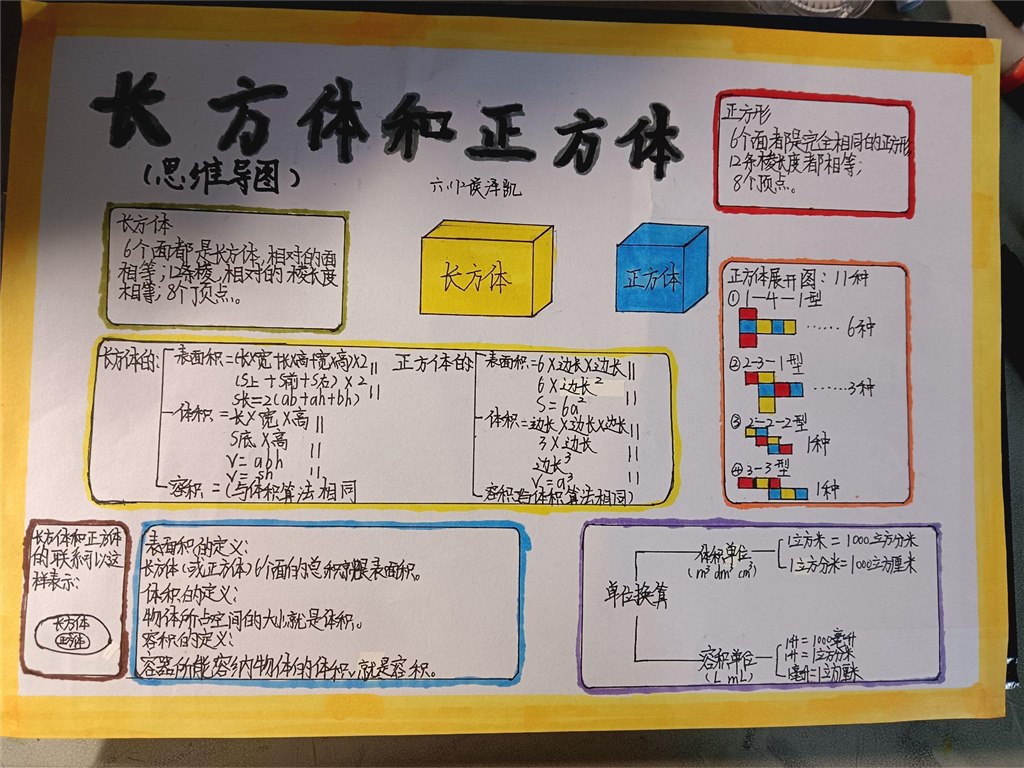 长方体和正方体
(思维导图)
六.(1)谈泽凯
正方形
6个面都是完全相同的正方形
12条棱长度都相等;
8个顶点。
长方体
6个面都是长方体,相对的面
相等;12条棱,相对的棱长度
相等;8个顶点。
长方体
正方体
正方体展开图:11种
①1—4—1型
……6种
②2-3-1型
……3种
③2-2-2型
1种
④3-3型
1种
长方体的:
表面积=(长×宽+长×高+宽×高)×2
(S上+S前+S右)×2
S长=2(ab+ah+bh)
体积=长×宽×高
S底×高
V=abh
V=sh
容积=(与体积算法相同
正方体的
表面积=6×边长×边长
6×边长²
S=6a²
体积=边长×边长×边长
3×边长
边长³
V=a³
容积(与体积算法相同)
长方体和正方体
的联系可以这
样表示:
长方体
正方体
表面积的定义:
长方体(或正方体)6个面的总积就是表面积。
体积的定义:
物体所占空间的大小就是体积。
容积的定义:
容器所能容纳物体的体积,就是容积。
单位换算
体积单位
(m³ dm³ cm³)
1立方米=1000立方分米
1立方分米=1000立方厘米
容积单位
(L mL)
1升=1000毫升
1升=1立方分米
1毫升=1立方厘米